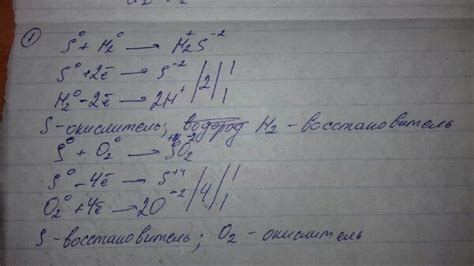 1
S⁰ + H₂⁰ → H₂⁺S⁻²
S⁰ + 2ē → S⁻² | 2 | 1
H₂⁰ - 2ē → 2H⁺ | 1
S - окислитель; водород H₂ - восстановитель
S⁰ + O₂⁰ → S⁺⁴O₂⁻²
S⁰ - 4ē → S⁺⁴ | 4 | 1
O₂⁰ + 4ē → 2O⁻² | 1
S - восстановитель; O₂ - окислитель